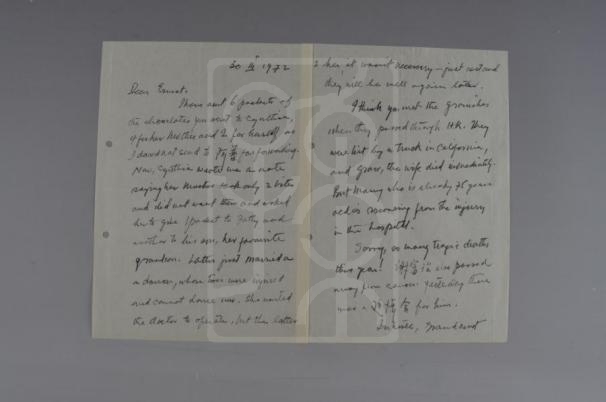 30 IX 1972
Dear Ernest.
I have sent 6 packets of
the chocolates you sent to Cynthia,
4 for her Mother and 2 for herself as
I dared not send to for forwarding.
Now, Cynthia wrote me a note
saying her Mother took only 2 bites
and did not want them and asked
her to give 1 packet to Fatty and
another to his son, her favourite
grandson. Latter just married a
a dancer, whose toes were injured
and cannot dance now. She wanted
the doctor to operate, but the latter
her it wasn't necessary — just rest and
they will be well again later.
I think you met the
when they passed through H.K. They
were hit by a truck in California,
and Grow, the wife died immediately.
But Manny who is already 75 years
old is recovering from the injury
in the hospital.
Sorry, so many tragic deaths
this year! also passed
away from cancer. Yesterday there
was a for him.
Grandaunt